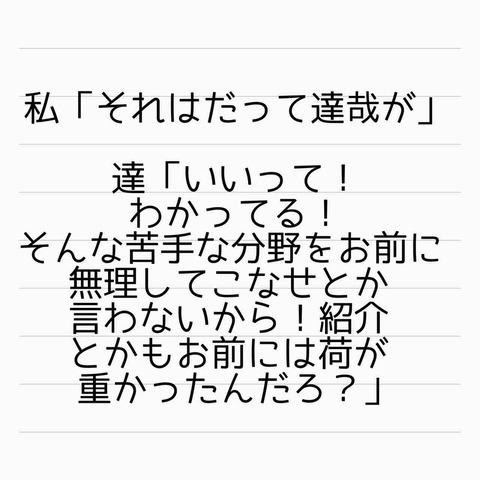 私「それはだって達哉が」
達「いいって！
わかってる！
そんな苦手な分野をお前に
無理してこなせとか
言わないから！紹介
とかもお前には荷が
重かったんだろ？」